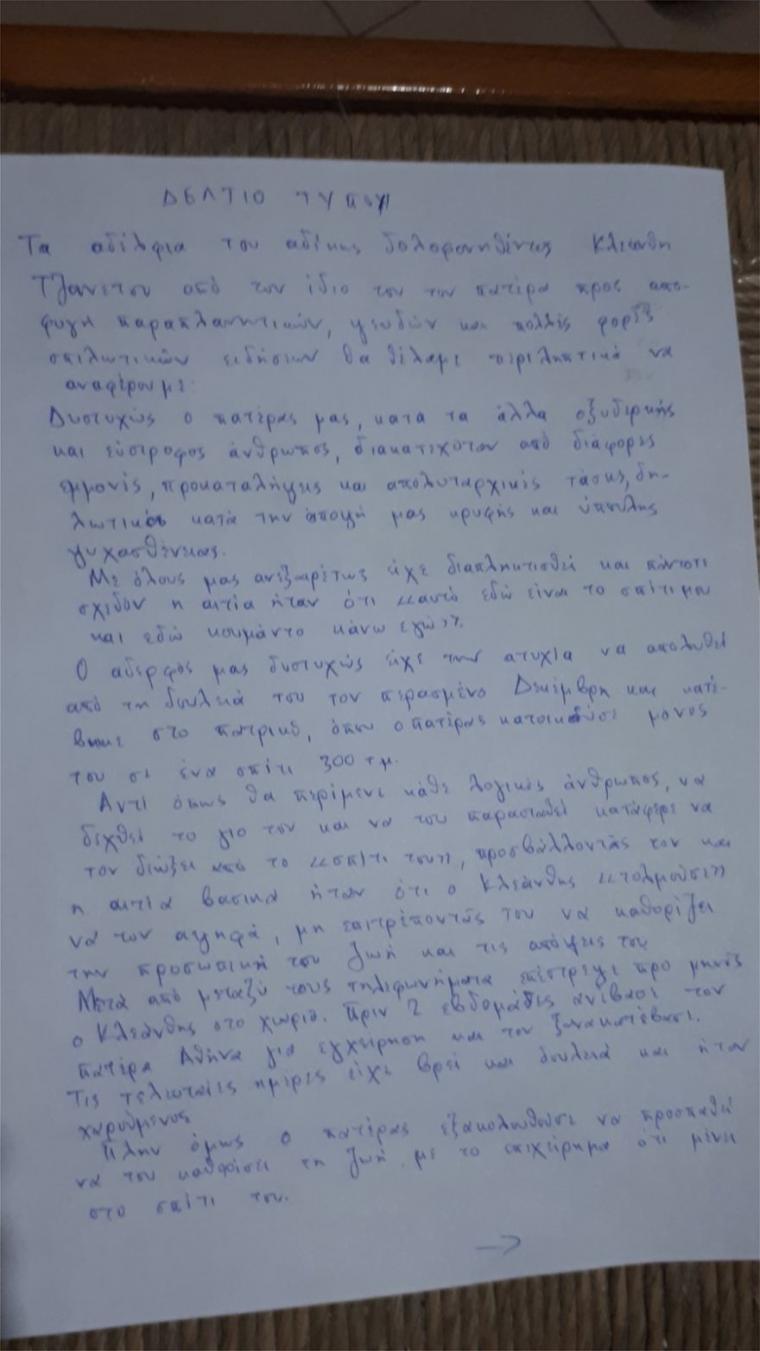 ΔΕΛΤΙΟ ΤΥΠΟΥ
Τα αδέλφια του αδίκως δολοφονηθέντος Κλεάνθη
Τζανετου από τον ίδιο του τον πατέρα προς απο-
φυγή παραπλανητικών, ψευδών και πολλές φορές
σπιλωτικών ειδήσεων θα θέλαμε περιληπτικά να
αναφέρουμε:
Δυστυχώς ο πατέρας μας, κατα τα άλλα οξυδερκής
και εύστροφος άνθρωπος, διακατεχόταν από διάφορες
εμμονές, προκαταλήψεις και απολυταρχικές τάσεις, δη-
λωτικές κατά την άποψή μας κρυφής και ύπουλης
ψυχασθένειας.
Με όλους μας ανεξαιρέτως είχε διαπληκτισθεί και πάντοτε
σχεδόν η αιτία ήταν ότι «αυτό εδώ είναι το σπίτι μου
και εδώ κουμάντο κάνω εγώ».
Ο αδερφός μας δυστυχώς είχε την ατυχία να απολυθεί
από τη δουλειά του τον περασμένο Δεκέμβρη και κατέ-
βηκε στο πατρικό, όπου ο πατέρας κατοικούσε μονος
του σε ένα σπίτι 300 τ.μ.
Αντί όπως θα περίμενε κάθε λογικός άνθρωπος, να
δεχθεί το γιο του και να του παρασταθεί κατάφερε να
τον διώξει από το «σπίτι του», προσβάλλοντάς τον και
η αιτία βασικά ήταν ότι ο Κλεάνθης «τολμούσε»
να τον αψηφά, μη επιτρέποντάς του να καθορίζει
την προσωπική του ζωή και τις απόψεις του
Μετά από μεταξύ τους τηλεφωνήματα επέστρεψε προ μηνός
ο Κλεάνθης στο χωριό. Πριν 2 εβδομάδες ανέβασε τον
πατέρα Αθήνα για εγχείρηση και τον ξανακατέβασε.
Τις τελευταίες ημέρες είχε βρεί και δουλειά και ήταν
χαρούμενος
Πλην όμως ο πατέρας εξακολουθούσε να προσπαθεί
να του καθορίσει τη ζωή με το επιχείρημα ότι μένει
στο σπίτι του.
→